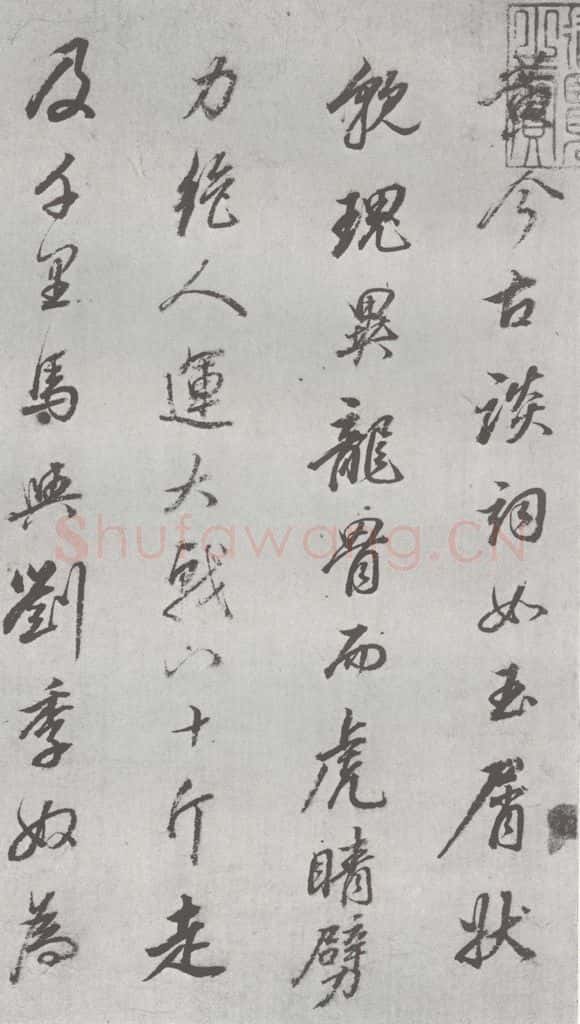 黃今古談詞如玉屑狀
貌瑰異龍骨而虎睛劈
力絕人運大戟八十斤走
及千里馬與劉季奴為
Shufawang.CN